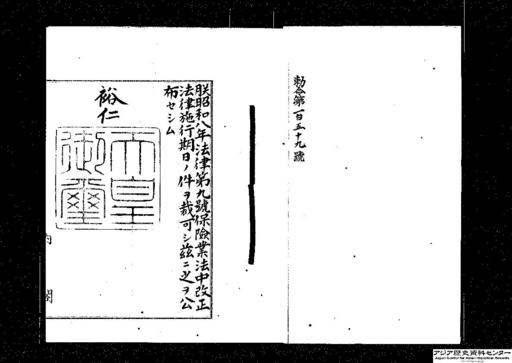 勅令第一百五十九號
朕昭和八年法律第九號保險業法中改正
法律施行期日ノ件ヲ裁可シ茲ニ之ヲ公
布セシム
裕仁
天皇
御璽
内閣
アジア歴史資料センター
Japan Center for Asian Historical Records